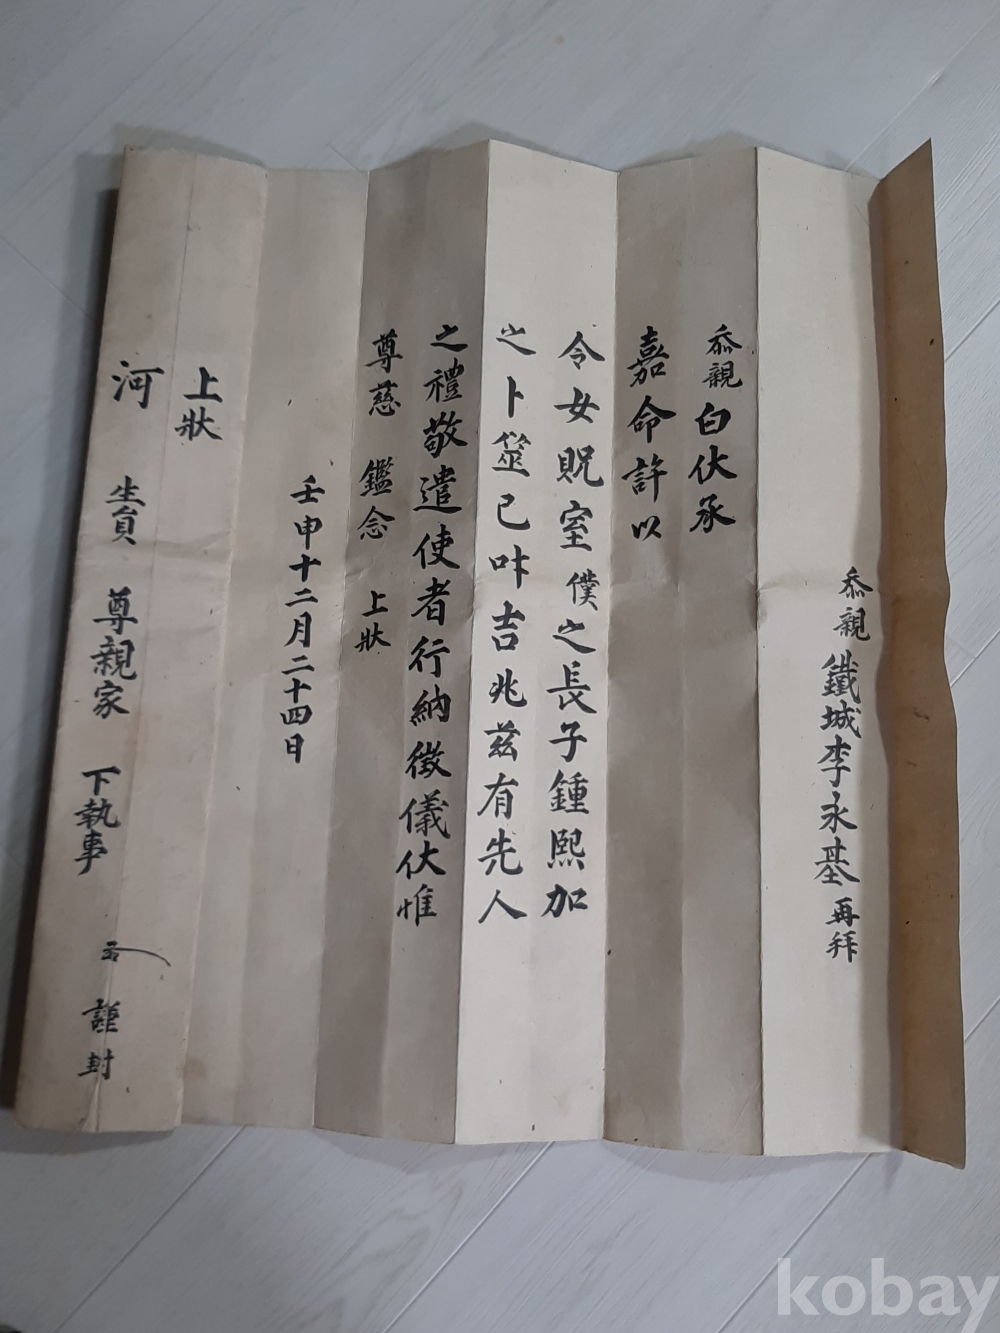 忝親鐵城李永基 再拜
忝親白伏承
嘉命許以
令女貺室僕之長子鍾熙加
之卜筮已叶吉兆玆有先人
之禮敬遣使者行納徵儀伏惟
尊慈 鑑念 上狀
壬申十二月二十四日
上狀
河 生員 尊親家 下執事 謹封
kobay